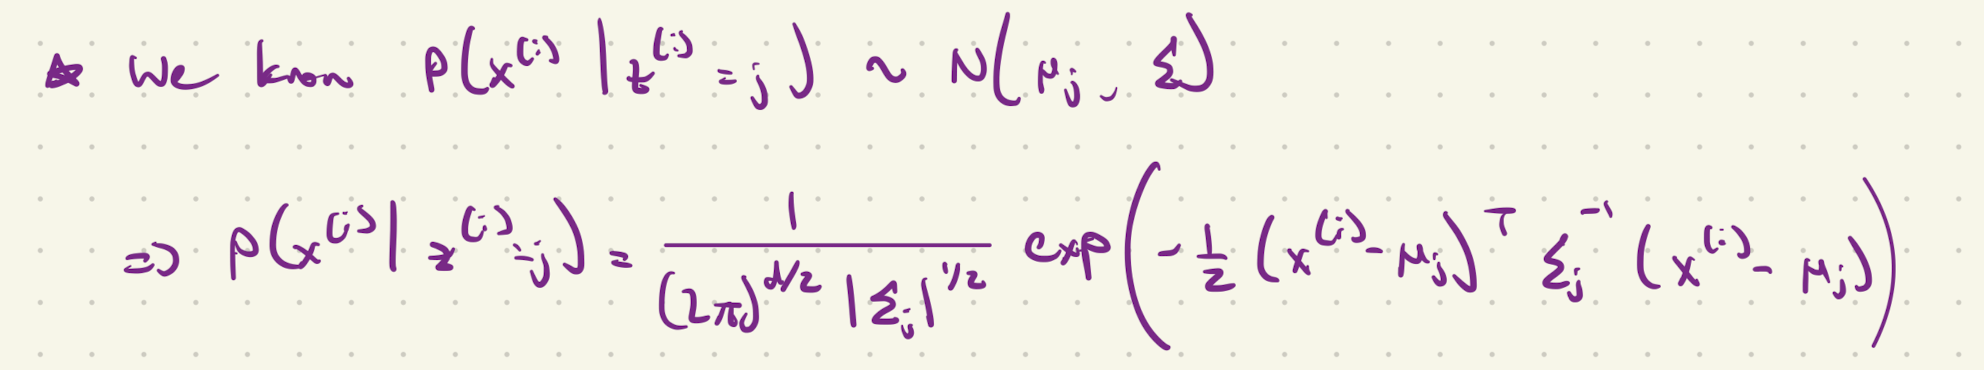 ☆ We know P(x^(i) | z^(i) = j) ~ N(μ_j, Σ)
=> P(x^(i) | z^(i) = j) = 1 / ((2π)^(d/2) |Σ_j|^(1/2)) exp(-1/2 (x^(i) - μ_j)^T Σ_j^-1 (x^(i) - μ_j))